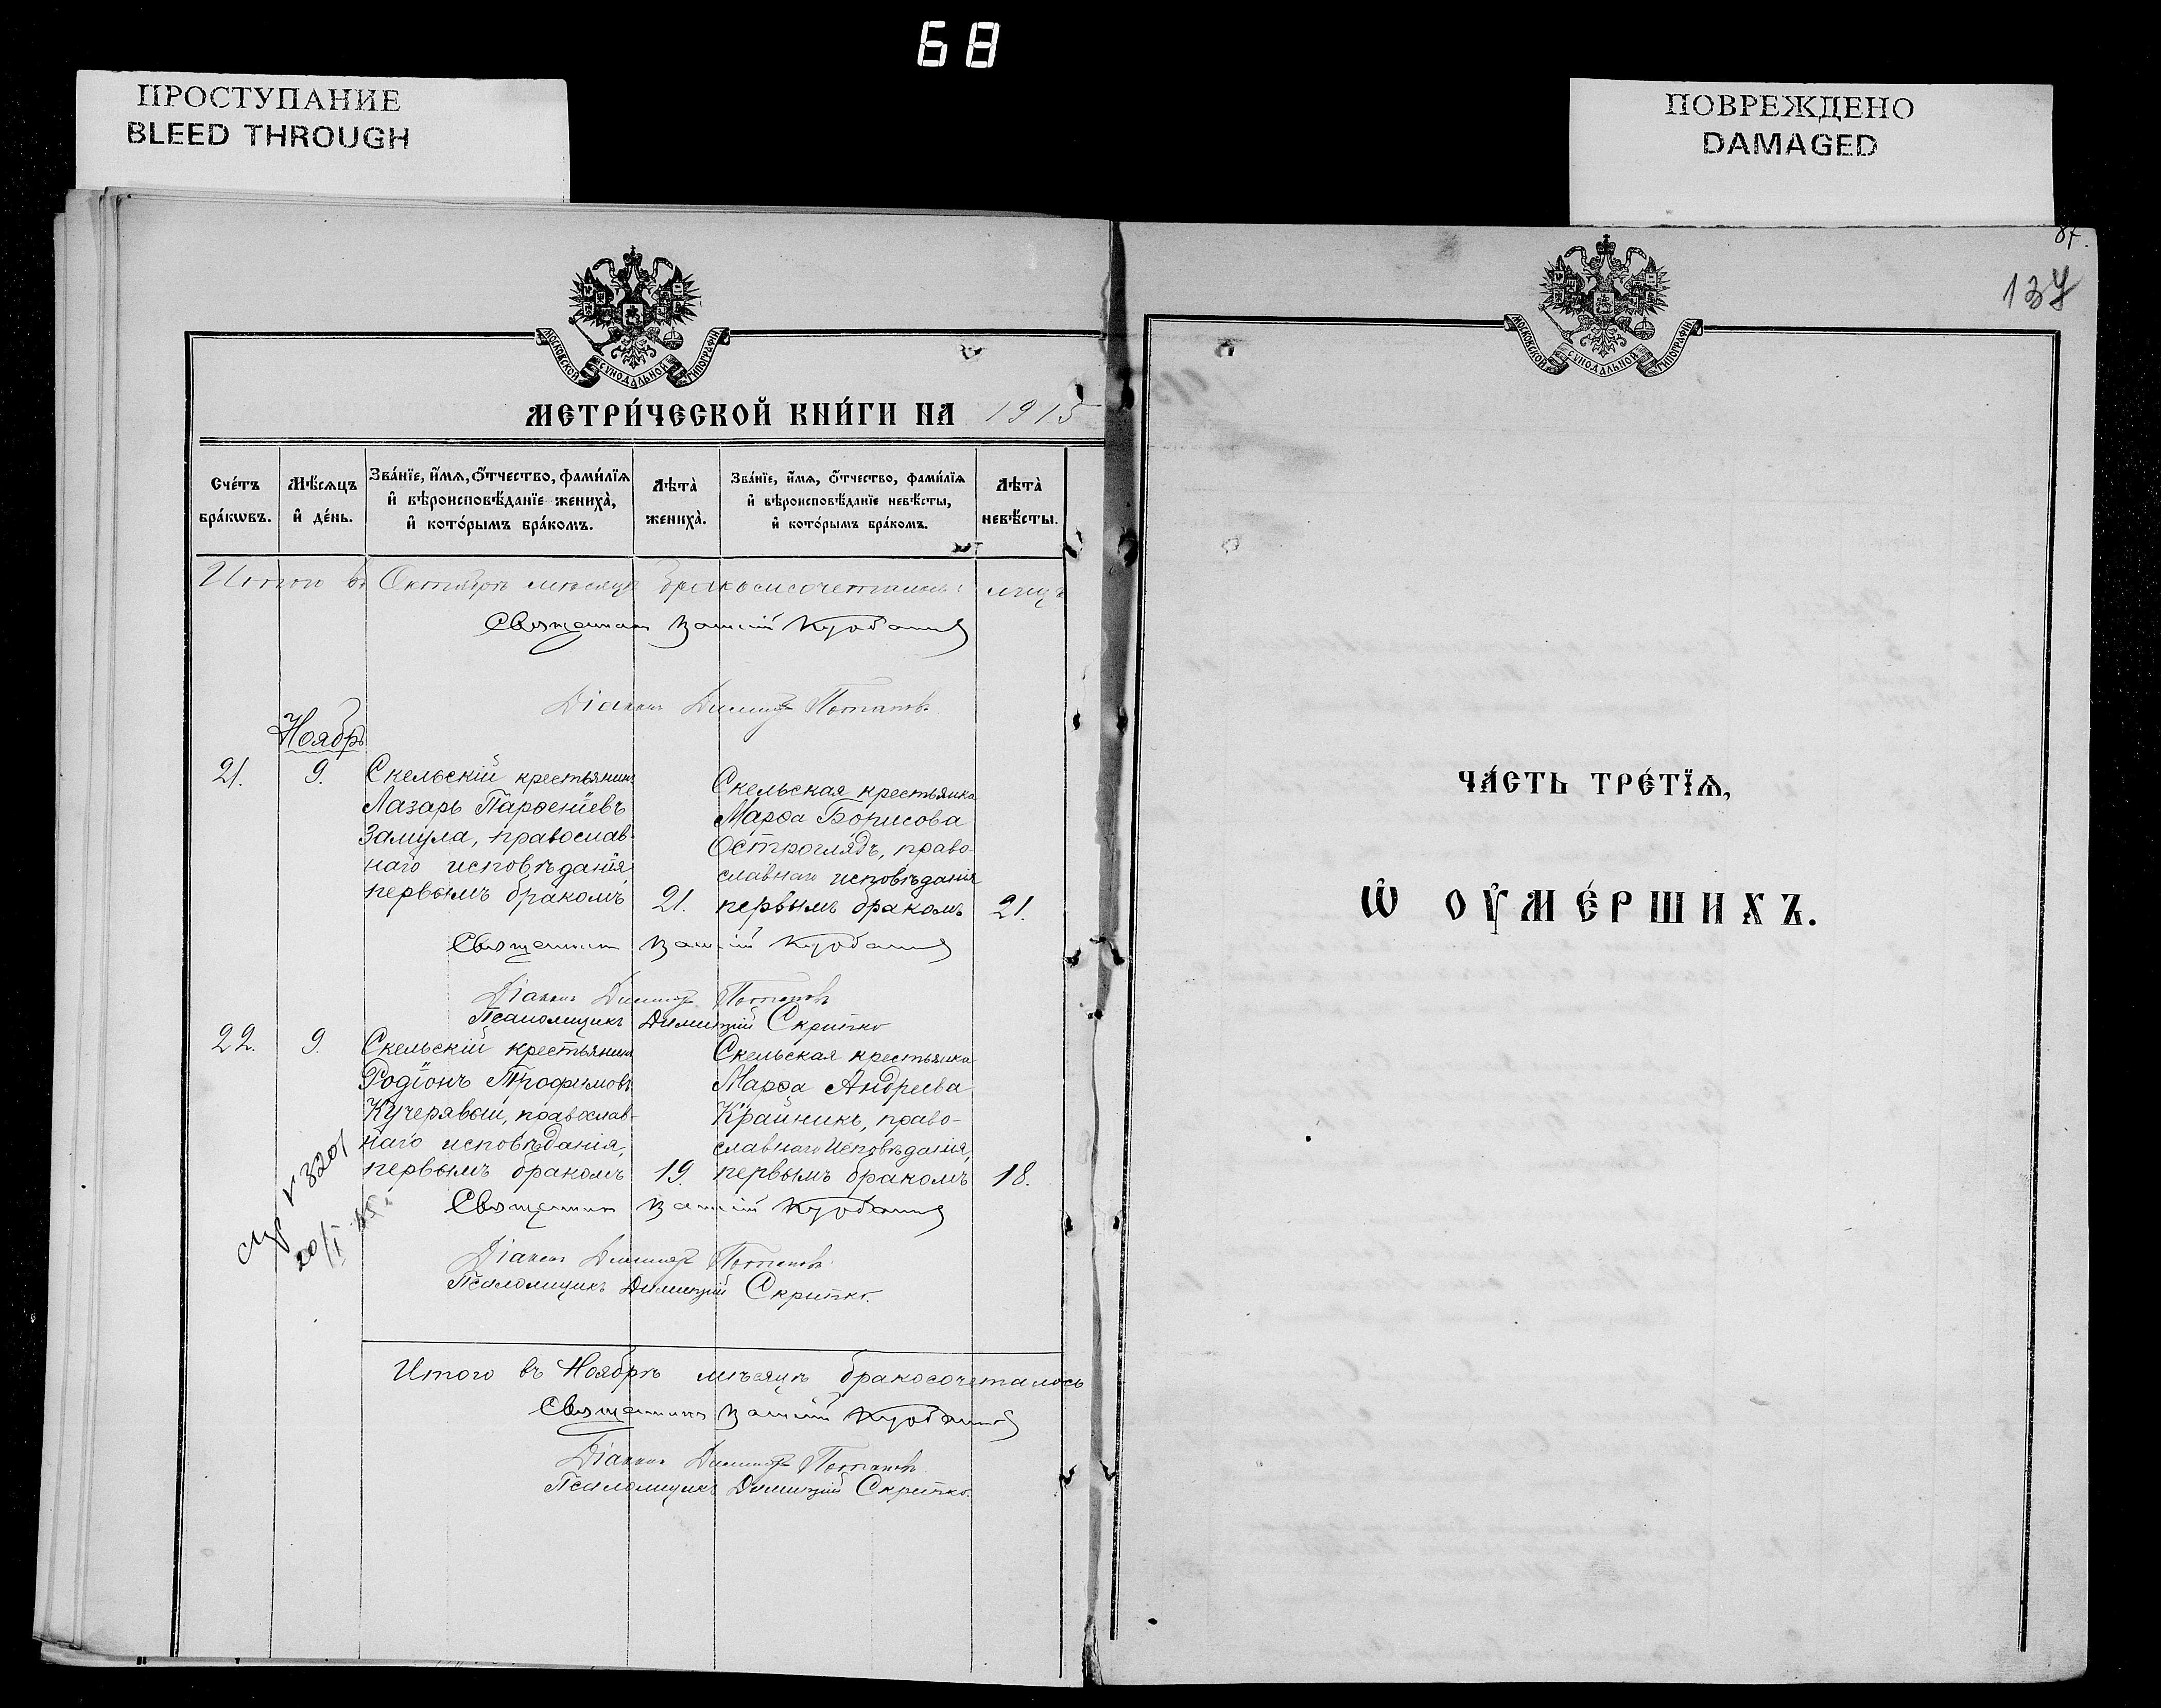 68
ПРОСТУПАНИЕ
BLEED THROUGH
ПОВРЕЖДЕНО
DAMAGED
МОСКОВСКОЙ СѴНОДАЛЬНОЙ ТИПОГРАФІИ
МЕТРИ́ЧЕСКОЙ КНИ́ГИ НА 1915
Сче́тъ бра́кѡвъ.
Мѣ́сяцъ и҆ де́нь.
Зва́нїе, и҆́мѧ, ѻ҆́тчество, фами́лїѧ
и҆ вѣроисповѣ́данїе жениха̀,
и҆ кото́рымъ бра́комъ.
Лѣта̀ жениха̀.
Зва́нїе, и҆́мѧ, ѻ҆́тчество, фами́лїѧ
и҆ вѣроисповѣ́данїе невѣ́сты,
и҆ кото́рымъ бра́комъ.
Лѣта̀ невѣ́сты.
Итого въ Октябрѣ мѣсяцѣ бракосочеталось: лицъ
Священникъ
Діаконъ Димитр Потаповъ
Ноябрь
21.
9.
Скельскій крестьянинъ
Лазарь Парѳеніевъ
Замула, православ-
наго исповѣданія
первымъ бракомъ
21.
Скельская крестьянка
Марѳа Борисова
Остроглядъ, право-
славнаго исповѣданія
первымъ бракомъ
21.
Священникъ
Діаконъ Димитр Потаповъ
Псаломщикъ Димитрій Скрипко
22.
9.
Скельскій крестьянинъ
Родіонъ Трофимовъ
Кучерявый, православ-
наго исповѣданія,
первымъ бракомъ
19.
Скельская крестьянка
Марѳа Андреева
Крайникъ, право-
славнаго исповѣданія,
первымъ бракомъ
18.
№ 3201
20/I
Священникъ
Діаконъ Димитр Потаповъ
Псаломщикъ Димитрій Скрипко.
Итого въ Ноябрѣ мѣсяцѣ бракосочеталось
Священникъ
Діаконъ Димитр Потаповъ
Псаломщикъ Димитрій Скрипко.
87.
137
МОСКОВСКОЙ СѴНОДАЛЬНОЙ ТИПОГРАФІИ
ЧА́СТЬ ТРЕ́ТЇѦ,
Ѡ҆ ОУ҆МЕ́РШИХЪ.